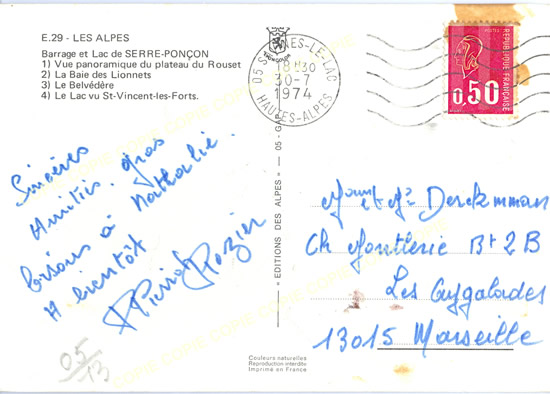 E.29 - LES ALPES
Barrage et Lac de SERRE-PONÇON
1) Vue panoramique du plateau du Rouset
2) La Baie des Lionnets
3) Le Belvédère
4) Le Lac vu St-Vincent-les-Forts.
05 S NES-LE-LAC
18H30
30-7
1974
HAUTES-ALPES
REPUBLIQUE FRANÇAISE
0,50
Sincères
Amitiés. gros
bisous à Nathalie.
A bientôt
Pierrot Rozier
05/13
« EDITIONS DES ALPES » — 05 - GAP
Mr Derckmman
Ch Montlerie Bt 2B
Les Aygalades
13015 Marseille
Couleurs naturelles
Reproduction interdite
Imprimé en France
COPIE COPIE COPIE